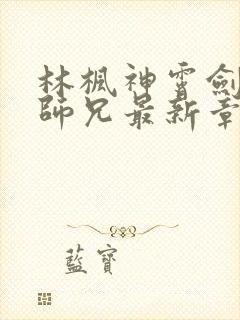 林楓神霄劍
師兄最新章
藍寶